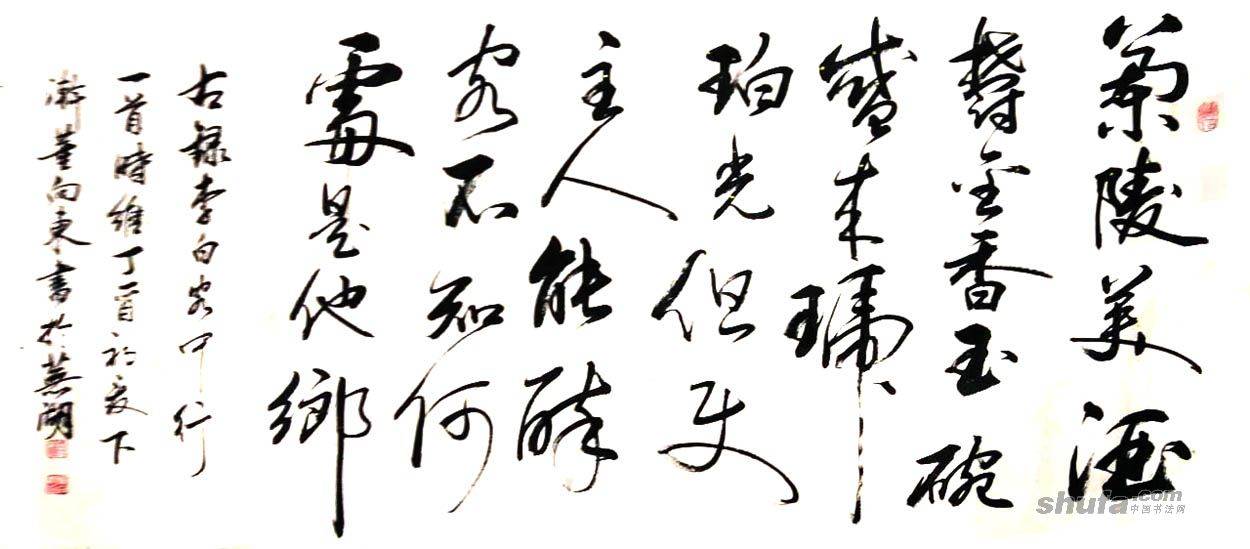 蘭陵美酒
鬱金香玉碗
盛来琥
珀光但使
主人能醉
客不知何
處是他鄉
右録李白客中行
一首時維丁酉初夏下
澣董向東書於蕪湖
shufa.com
中国书法网